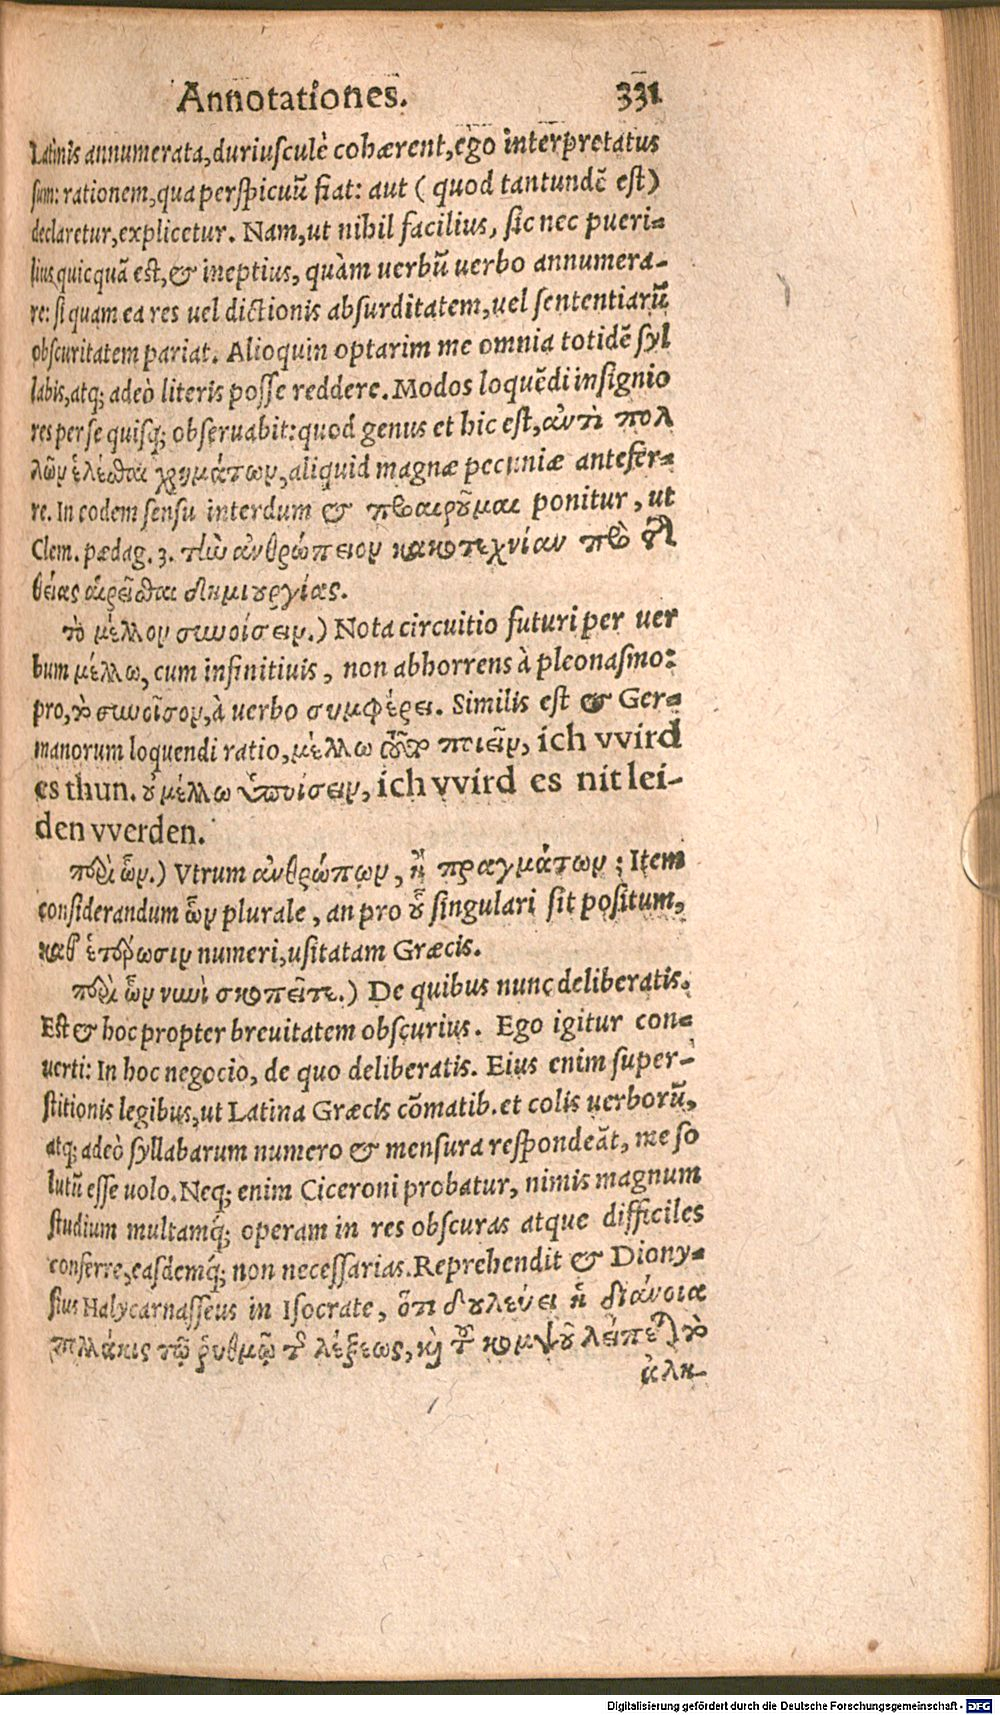 Annotationes. 331
Latinis annumerata, duriusculè cohærent, ego interpretatus
sum: rationem, qua perspicuũ fiat: aut (quod tantundẽ est)
declaretur, explicetur. Nam, ut nihil facilius, sic nec pueri-
lius quicquã est, & ineptius, quàm uerbũ uerbo annumera-
re: si quam ea res uel dictionis absurditatem, uel sententiarũ
obscuritatem pariat. Alioquin optarim me omnia totidẽ syl
labis, atq; adeò literis posse reddere. Modos loquẽdi insignio
res per se quisq; obseruabit: quod genus et hic est, ἀντὶ πολ
λῶν ἑλέσθαι χρημάτων, aliquid magnæ pecuniæ antefer-
re. In eodem sensu interdum & προαιροῦμαι ponitur, ut
Clem. pædag. 3. τὴν ἀνθρώπειον κακοτεχνίαν πρὸ τῆς
θείας αἱρεῖσθαι δημιουργίας.
τὸ μέλλον συνοίσειν.) Nota circuitio futuri per uer
bum μέλλω, cum infinitiuis, non abhorrens à pleonasmo:
pro, τὸ συνοῖσον, à uerbo συμφέρει. Similis est & Ger-
manorum loquendi ratio, μέλλω ποιεῖν, ich vvird
es thun. οὐ μέλλω ὑποίσειν, ich vvird es nit lei-
den vverden.
περὶ ὧν.) Vtrum ἀνθρώπων, ἢ πραγμάτων; Item
considerandum ὧν plurale, an pro οὗ singulari sit positum,
καθ' ἑτέρωσιν numeri, usitatam Græcis.
περὶ ὧν νυνὶ σκοπεῖτε.) De quibus nunc deliberatis.
Est & hoc propter breuitatem obscurius. Ego igitur con-
uerti: In hoc negocio, de quo deliberatis. Eius enim super-
stitionis legibus, ut Latina Græcis cõmatib. et colis uerborũ,
atq; adeò syllabarum numero & mensura respondeãt, me so
lutũ esse uolo. Neq; enim Ciceroni probatur, nimis magnum
studium multamq́; operam in res obscuras atque difficiles
conferre, easdemq́; non necessarias. Reprehendit & Diony-
sius Halycarnasseus in Isocrate, ὅτι δουλεύει ἡ διάνοια
πολλάκις τῷ ῥυθμῷ τῆς λέξεως, καὶ τοῦ κομψοῦ λείπεται τὸ
ἀλη-
Digitalisierung gefördert durch die Deutsche Forschungsgemeinschaft - DFG